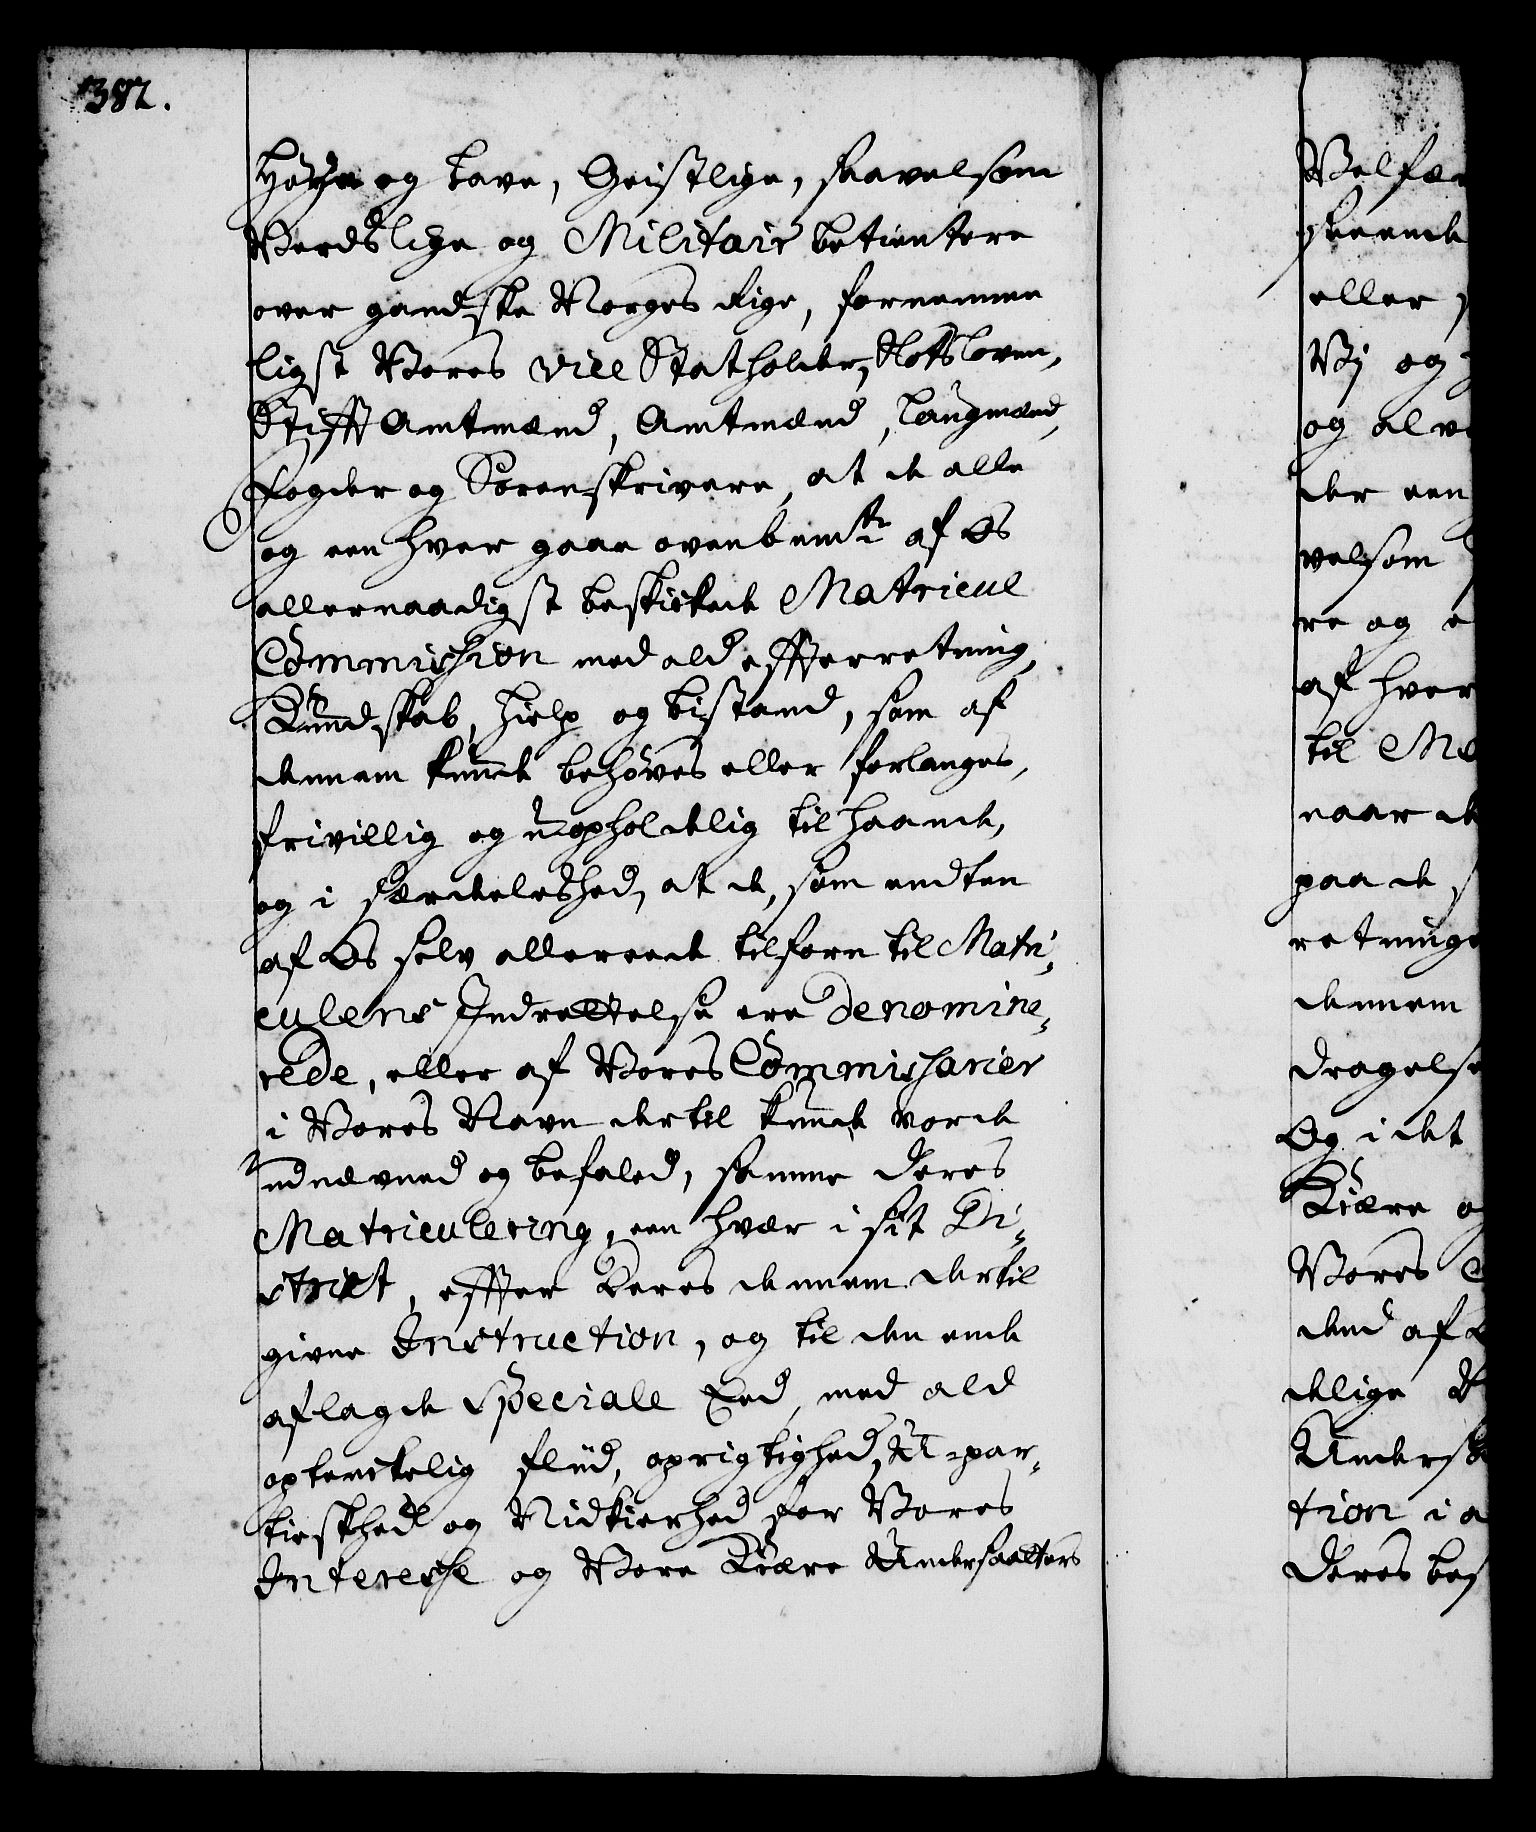 382.
Høye og Lave, Geistlige, saavelsom
Verdslige og Militair betientere
over gandske Norges Rige, fornemme
ligst Vores Vice Statholder, Slotsloven,
Stifft Amtmænd, Amtmænd, Laugmænd,
Fogder og Sorenskrivere, at de alle
og een hver gaae ovenbemte af Os
allernaadigst beskickede Matricul
Commission med ald effterretning,
Kundskab, hielp og bistand, som af
dennem kunde behøves eller forlanges,
frivillig og uopholdelig til haande,
og i særdeleshed, at de, som endten
af Os selv allereede tilforn til Matri,,
culens Indrettelse ere Denomine,,
rede, eller af Vores Commissarier
i Vores Navn dertil kunde vorde
udnævned og befaled, samme deres
Matriculering, een hvær i sit Di,,
strict, effter deres dennem dertil
givne Instruction, og til den ende
aflagde Speciale Eed, med ald
optenckelig fliid, oprigtighed, U-par,,
tieskhed og Nidkierhed for Vores
Interesse og Vore Kiære Undersaatters
Velfæ
skeende
eller
Vj og
og alv
der een
velsom
re og e
af hver
til Ma
naar de
paa de
retninge
dennem
dragelse
Og i det
Kiære og
Vores
dend af
delige
Undersa
tion i a
Deres bes